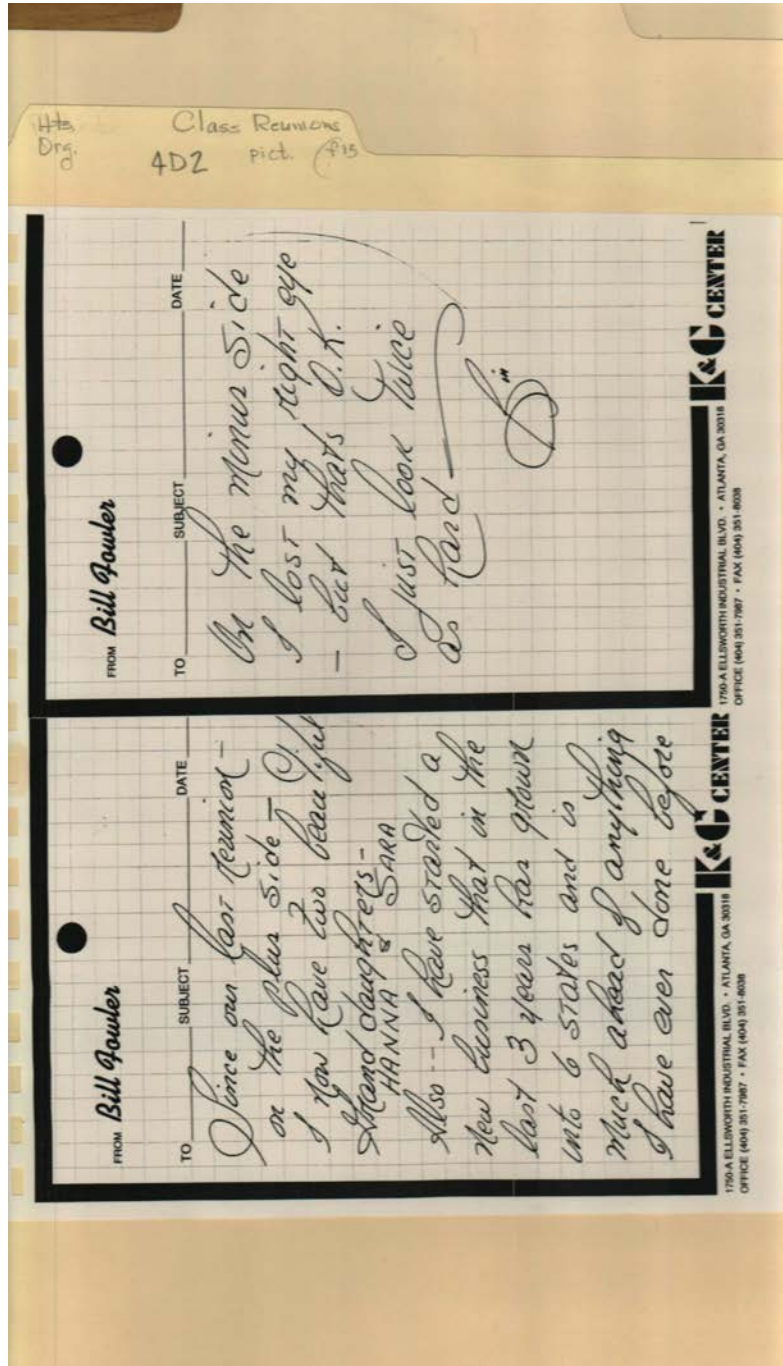 Hts
Drg.
Class Reunions
4D2 pict.
FROM Bill Fowler
TO SUBJECT DATE
Since our last Reunion –
on the plus side –
I now have two beautiful
Grand daughters –
HANNA & SARA
Also -- I have started a
new business that in the
last 3 years has grown
into 6 states and is
much ahead of anything
I have ever done before
K&G CENTER
1750-A ELLSWORTH INDUSTRIAL BLVD. • ATLANTA, GA 30318
OFFICE (404) 351-7987 • FAX (404) 351-8038
FROM Bill Fowler
TO SUBJECT DATE
On the minus side
I lost my right eye
– but thats O.K.
I just look twice
as hard –
Bill
K&G CENTER
1750-A ELLSWORTH INDUSTRIAL BLVD. • ATLANTA, GA 30318
OFFICE (404) 351-7987 • FAX (404) 351-8038